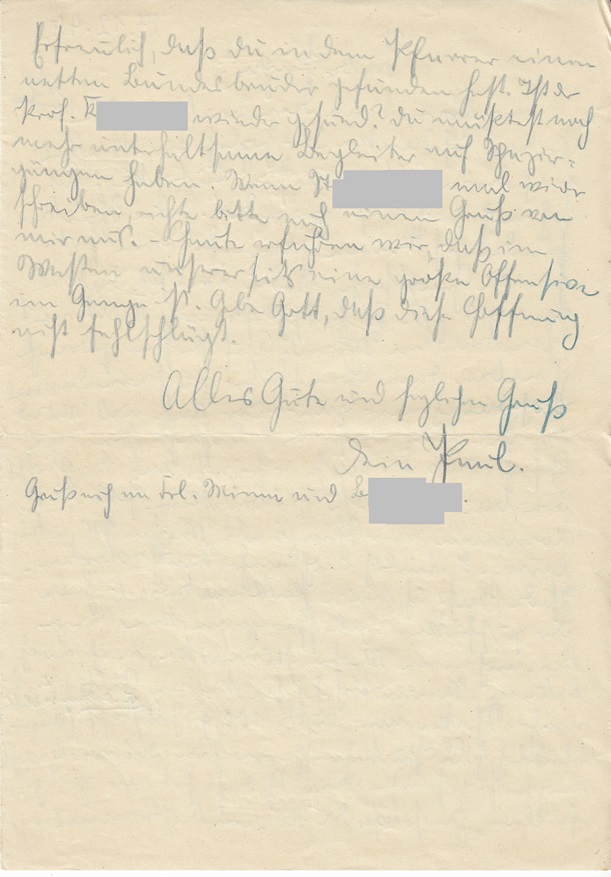 Erfreulich, daß du in dem Pfarrer einen
netten Bundesbruder gefunden hast. Ist der
Prof. K wieder gesund? Du müßtest noch
mehr unterhaltsame Begleiter auf Spazier-
gängen haben. Wenn mal wieder
schreiben, richte bitte auch einen Gruß von
mir aus. – Heute erfuhren wir, daß im
Westen unsererseits eine große Offensive
im Gange ist. Gebe Gott, daß diese Hoffnung
nicht fehlschlägt.
Alles Gute und herzlichen Gruß
Dein Paul.
Gruß auch an Frl. Minna und B.